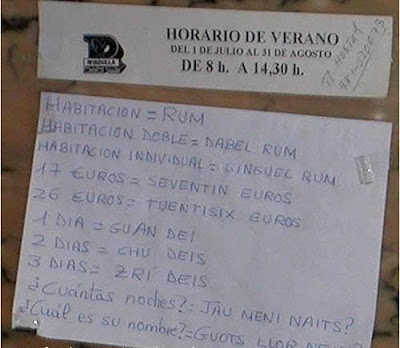 HORARIO DE VERANO
DEL 1 DE JULIO AL 31 DE AGOSTO
DE 8 h. A 14,30 h.
HABITACION = RUM
HABITACION DOBLE = DABEL RUM
HABITACION INDIVIDUAL = SINGUEL RUM
17 EUROS = SEVENTIN EUROS
26 EUROS = TUENTISIX EUROS
1 DIA = GUAN DEI
2 DIAS = CHU DEIS
3 DIAS = ZRÍ DEIS
¿Cuántas noches? = JAU MENI NAITS?
¿Cuál es su nombre? = GUOTS LLOR